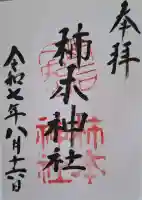 奉拝
柿本神社
令和七年八月十六日